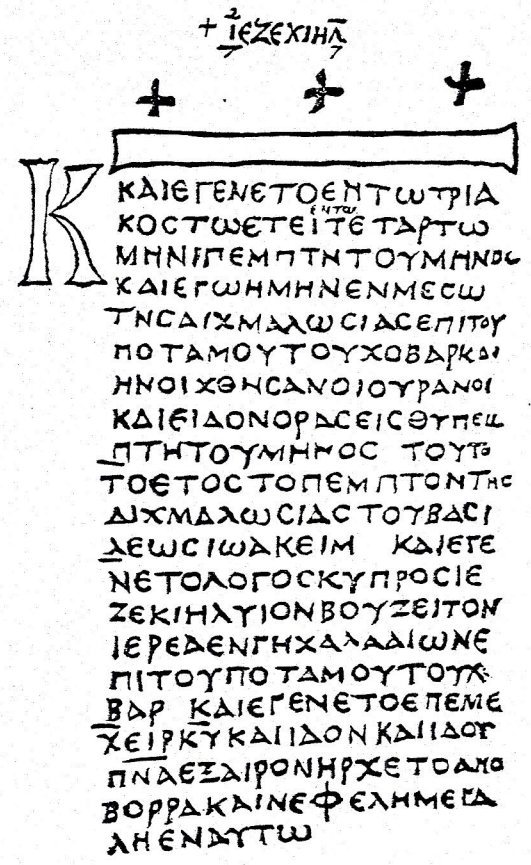 + ΙΕΖΕΧΙΗΛ
Κ
ΚΑΙΕΓΕΝΕΤΟΕΝΤΩΤΡΙΑ
ΕΝΤΩ
ΚΟCΤΩΕΤΕΙΤΕΤΑΡΤΩ
ΜΗΝΙΠΕΜΠΤΗΤΟΥΜΗΝΟC
ΚΑΙΕΓΩΗΜΗΝΕΝΜΕCΩ
ΤΗCΑΙΧΜΑΛΩCΙΑCΕΠΙΤΟΥ
ΠΟΤΑΜΟΥΤΟΥΧΟΒΑΡΚΑΙ
ΗΝΟΙΧΘΗCΑΝΟΙΟΥΡΑΝΟΙ
ΚΑΙΕΙΔΟΝΟΡΑCΕΙCΘΥΠΕΜ
ΠΤΗΤΟΥΜΗΝΟC ΤΟΥΤΟ
ΤΟΕΤΟCΤΟΠΕΜΠΤΟΝΤΗC
ΑΙΧΜΑΛΩCΙΑCΤΟΥΒΑCΙ
ΛΕΩCΙΩΑΚΕΙΜ ΚΑΙΕΓΕ
ΝΕΤΟΛΟΓΟCΚΥΠΡΟCΙΕ
ΖΕΚΙΗΛΥΙΟΝΒΟΥΖΕΙΤΟΝ
ΙΕΡΕΑΕΝΓΗΧΑΛΔΑΙΩΝΕ
ΠΙΤΟΥΠΟΤΑΜΟΥΤΟΥΧΟ
ΒΑΡ ΚΑΙΕΓΕΝΕΤΟΕΠΕΜΕ
ΧΕΙΡΚΥΚΑΙΙΔΟΝΚΑΙΙΔΟΥ
ΠΝΑΕΞΑΙΡΟΝΗΡΧΕΤΟΑΠΟ
ΒΟΡΡΑΚΑΙΝΕΦΕΛΗΜΕΓΑ
ΛΗΕΝΑΥΤΩ